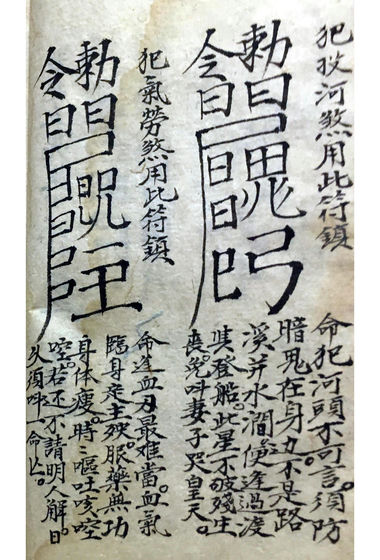 犯投河煞用此符鎮
勅令
命犯河頭不可言。須防
暗鬼在身边。不是路
溪并水澗便逢過渡
與登船。此星不破殘生
喪。免叫妻子哭皇天。
犯氣勞煞用此符鎮
勅令
命逢血刃最難當。血氣
臨身定主殃。服藥無功
身体瘦。時〻嘔吐咳啌
啌。若还不請明人解。日
久須叫一命亡。